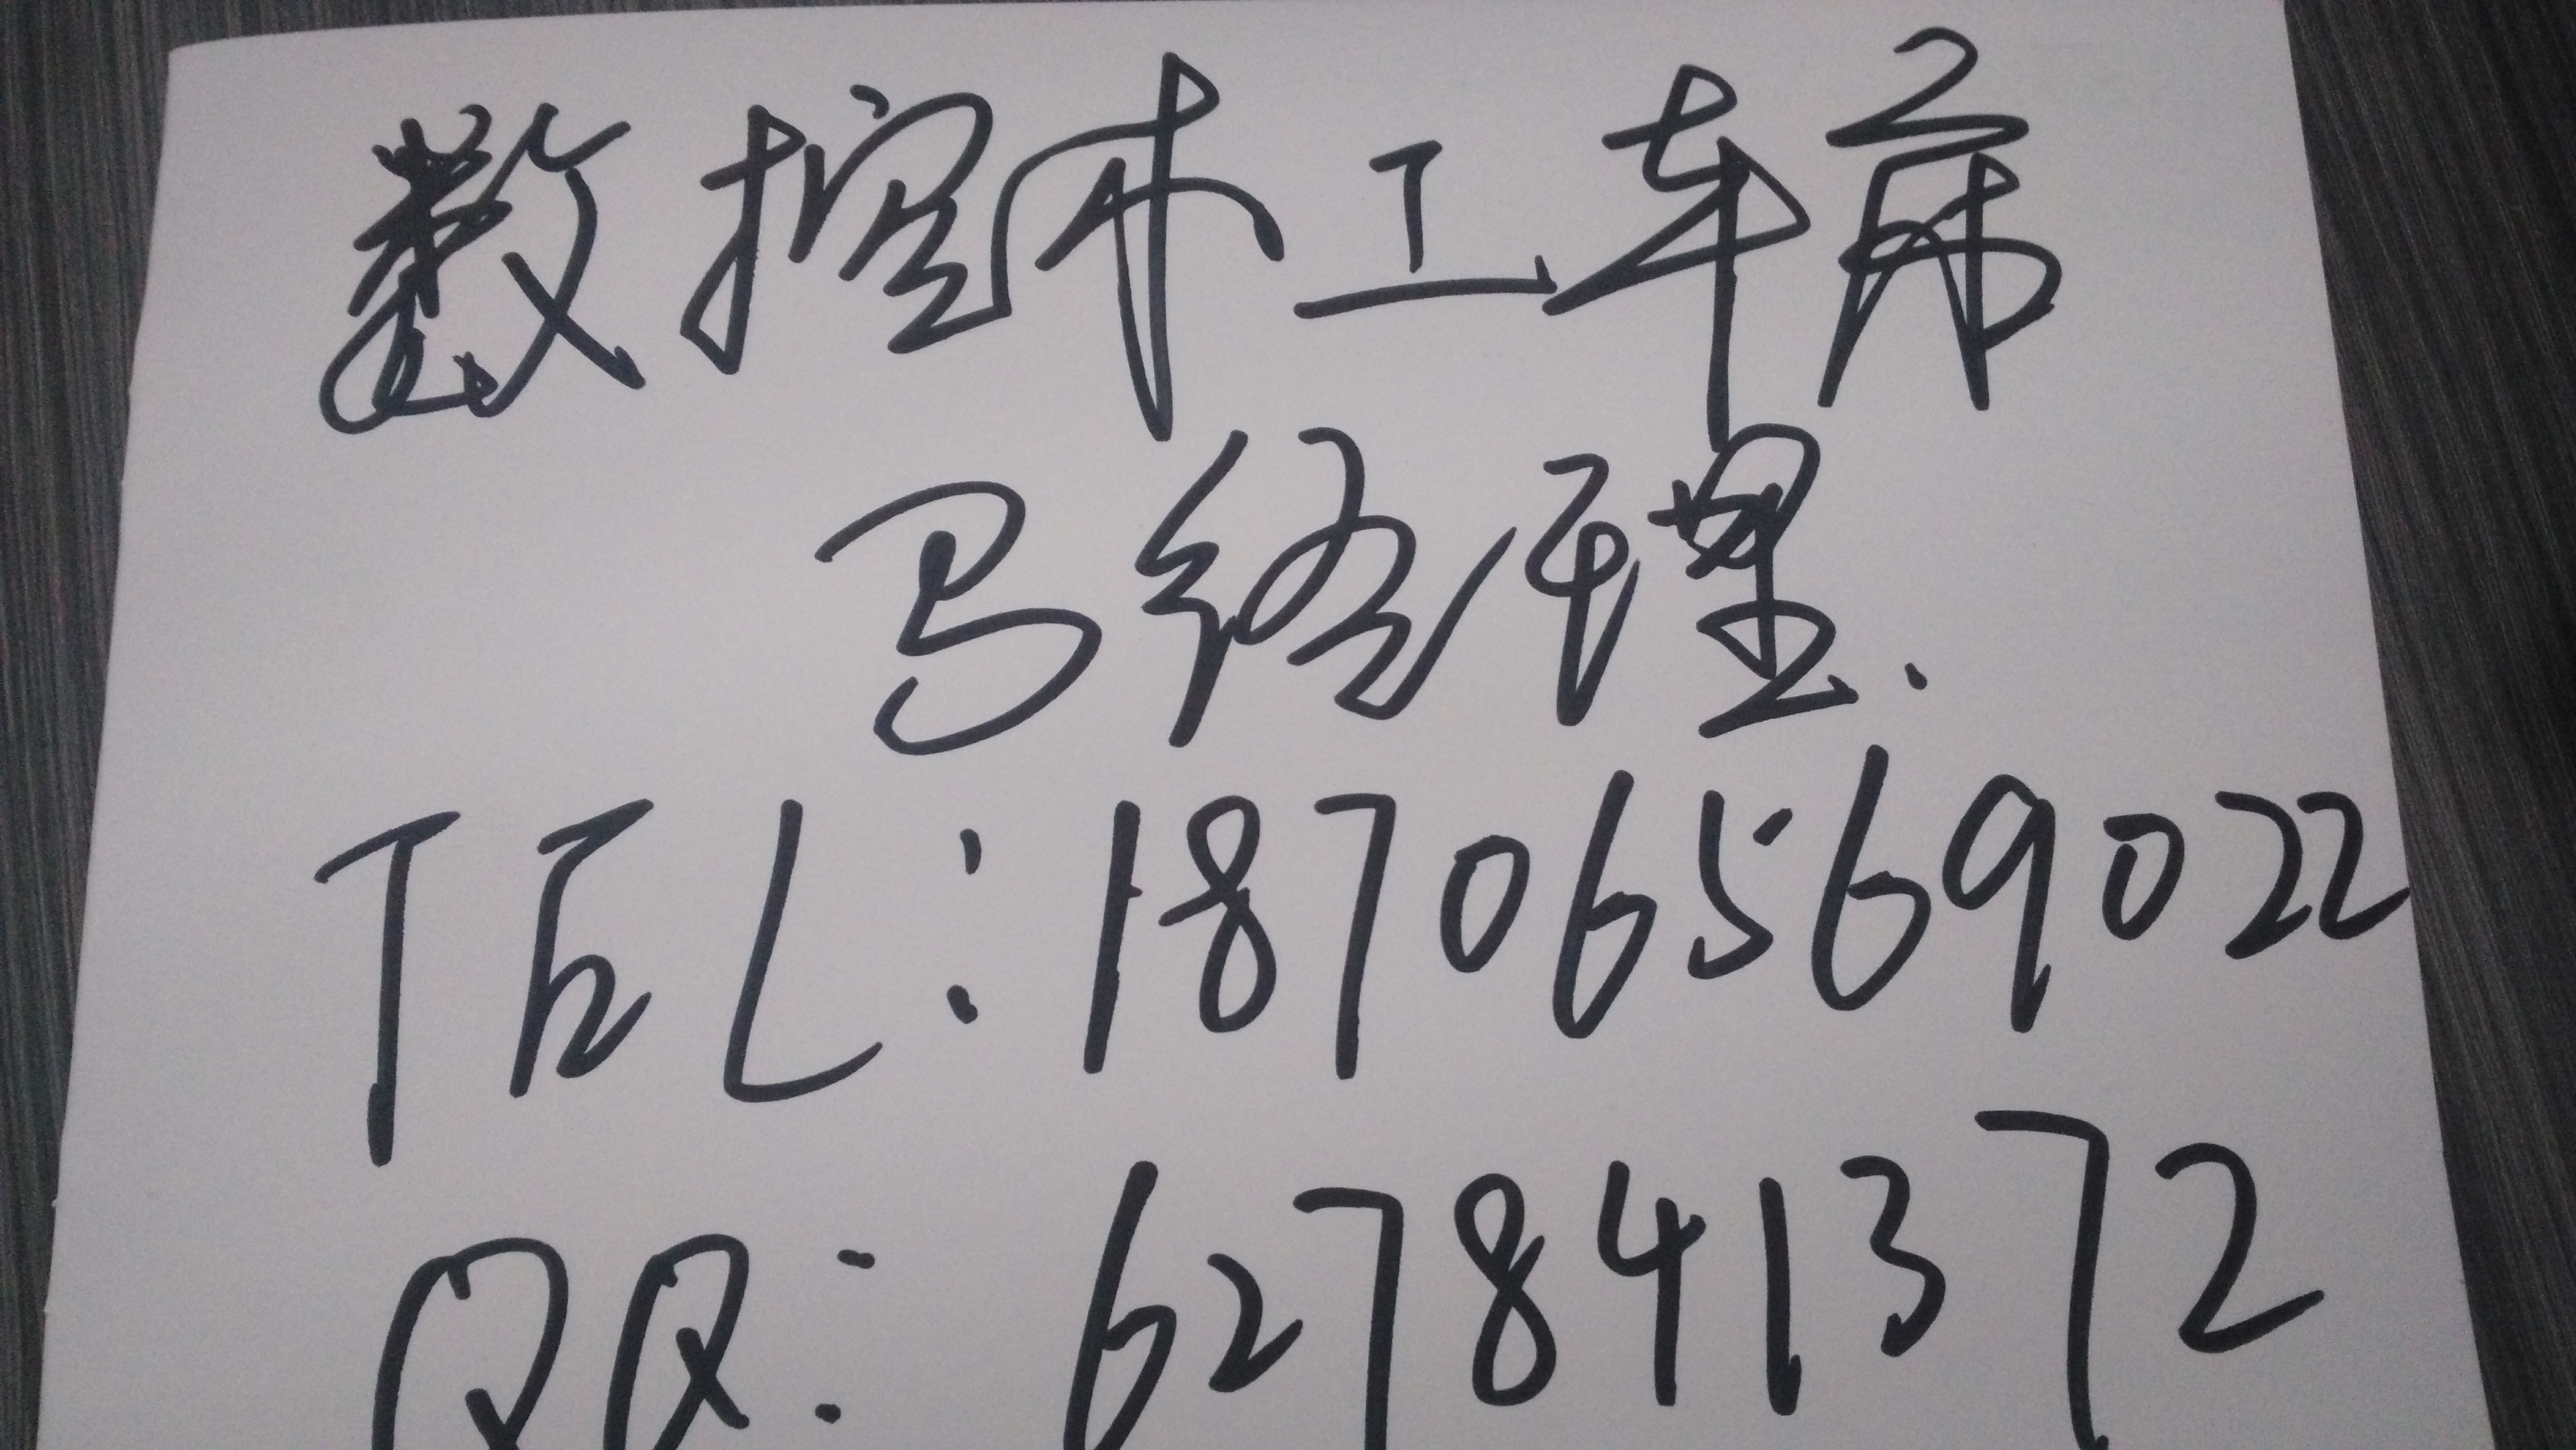 数控木工车床
马经理.
TEL:18706569022
QQ:627841372